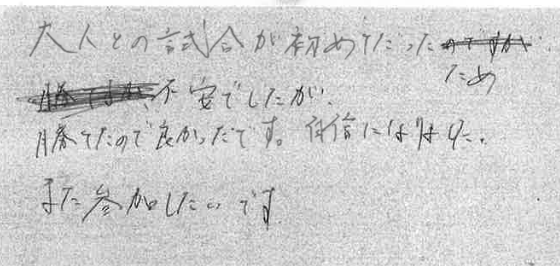 大人との試合が初めてだった
ため
不安でしたが、
勝てたので良かったです。自信になりました。
また参加したいです